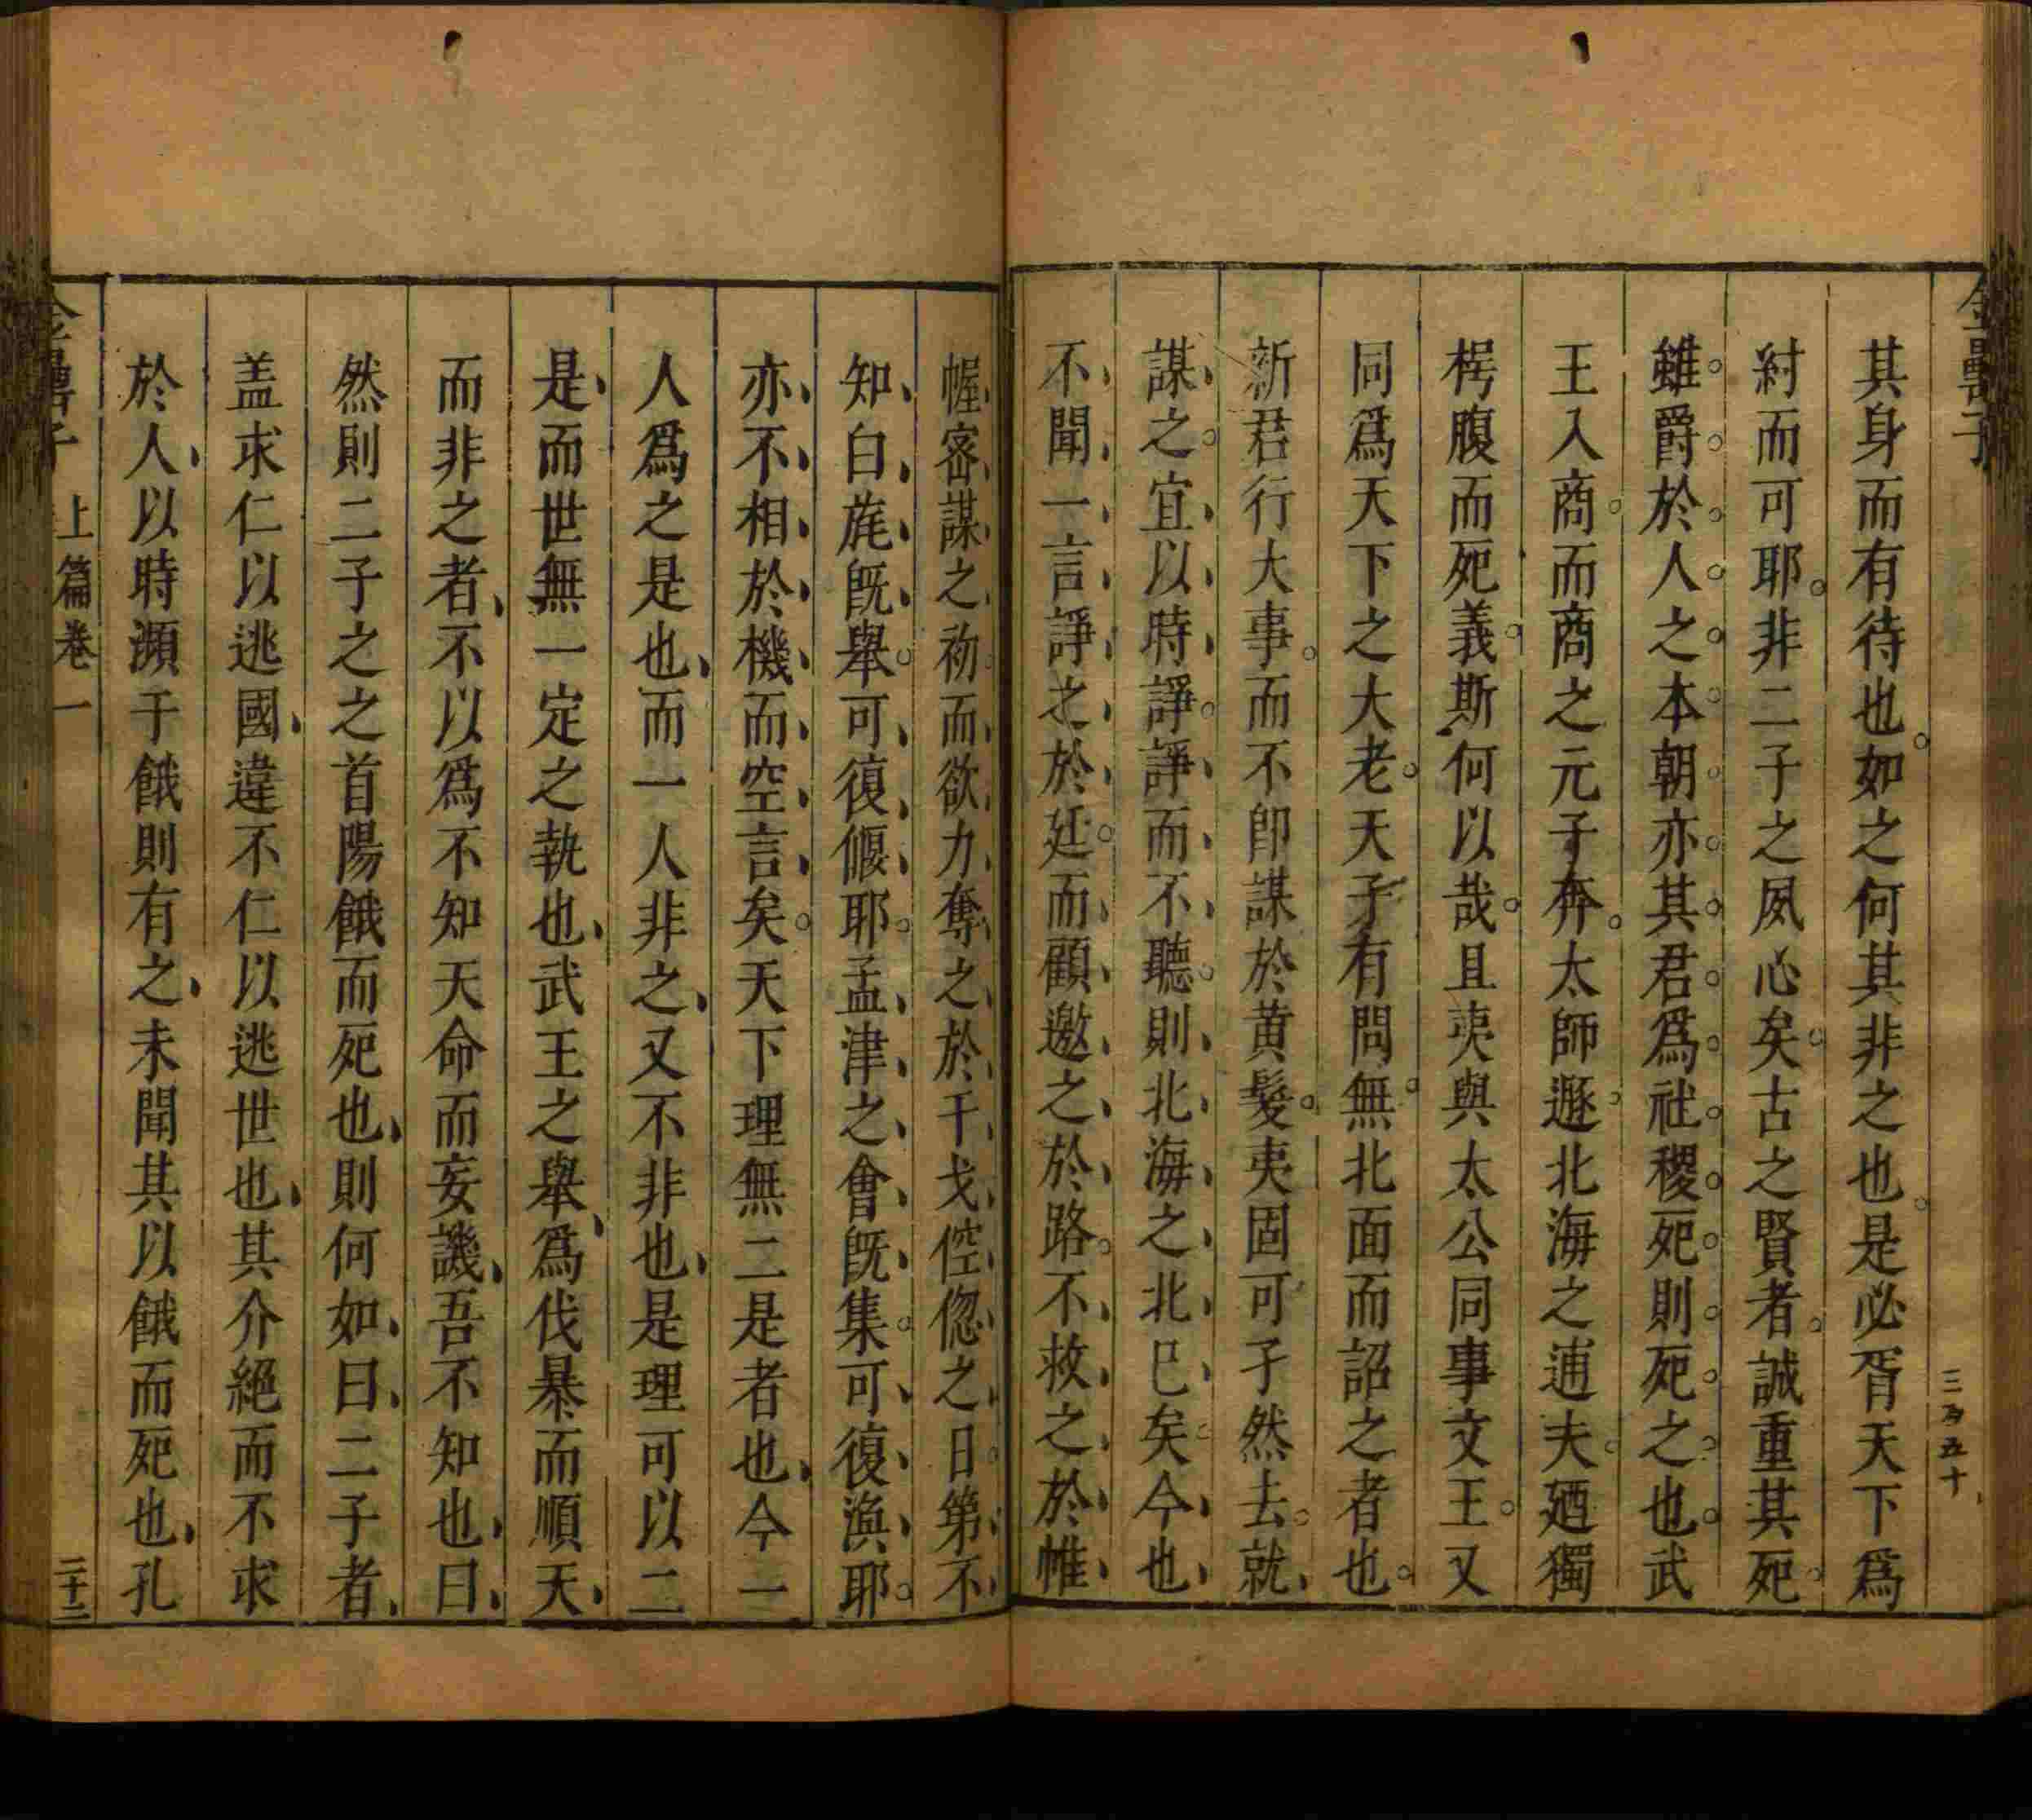 金罍子
三百五十
其身而有待也如之何其非之也是必胥天下爲
紂而可耶非二子之夙心矣古之賢者誠重其死
雖爵於人之本朝亦其君爲社稷死則死之也武
王入商而商之元子奔太師遯北海之逋夫廼獨
枵腹而死義斯何以哉且夷與太公同事文王又
同爲天下之大老天子有問無北面而詔之者也
新君行大事而不卽謀於黄髮夷固可孑然去就
謀之宜以時諍諍而不聽則北海之北已矣今也
不聞一言諍之於廷而顧邀之於路不救之於帷
幄密謀之初而欲力奪之於干戈倥傯之日第不
知白旄旣舉可復偃耶孟津之會旣集可復渙耶
亦不相於機而空言矣天下理無二是者也今一
人爲之是也而一人非之又不非也是理可以二
是而世無一定之執也武王之舉爲伐暴而順天
而非之者不以爲不知天命而妄譏吾不知也曰
然則二子之之首陽餓而死也則何如曰二子者
盖求仁以逃國違不仁以逃世也其介絕而不求
於人以時瀕于餓則有之未聞其以餓而死也孔
金罍子 上篇卷一 二十二